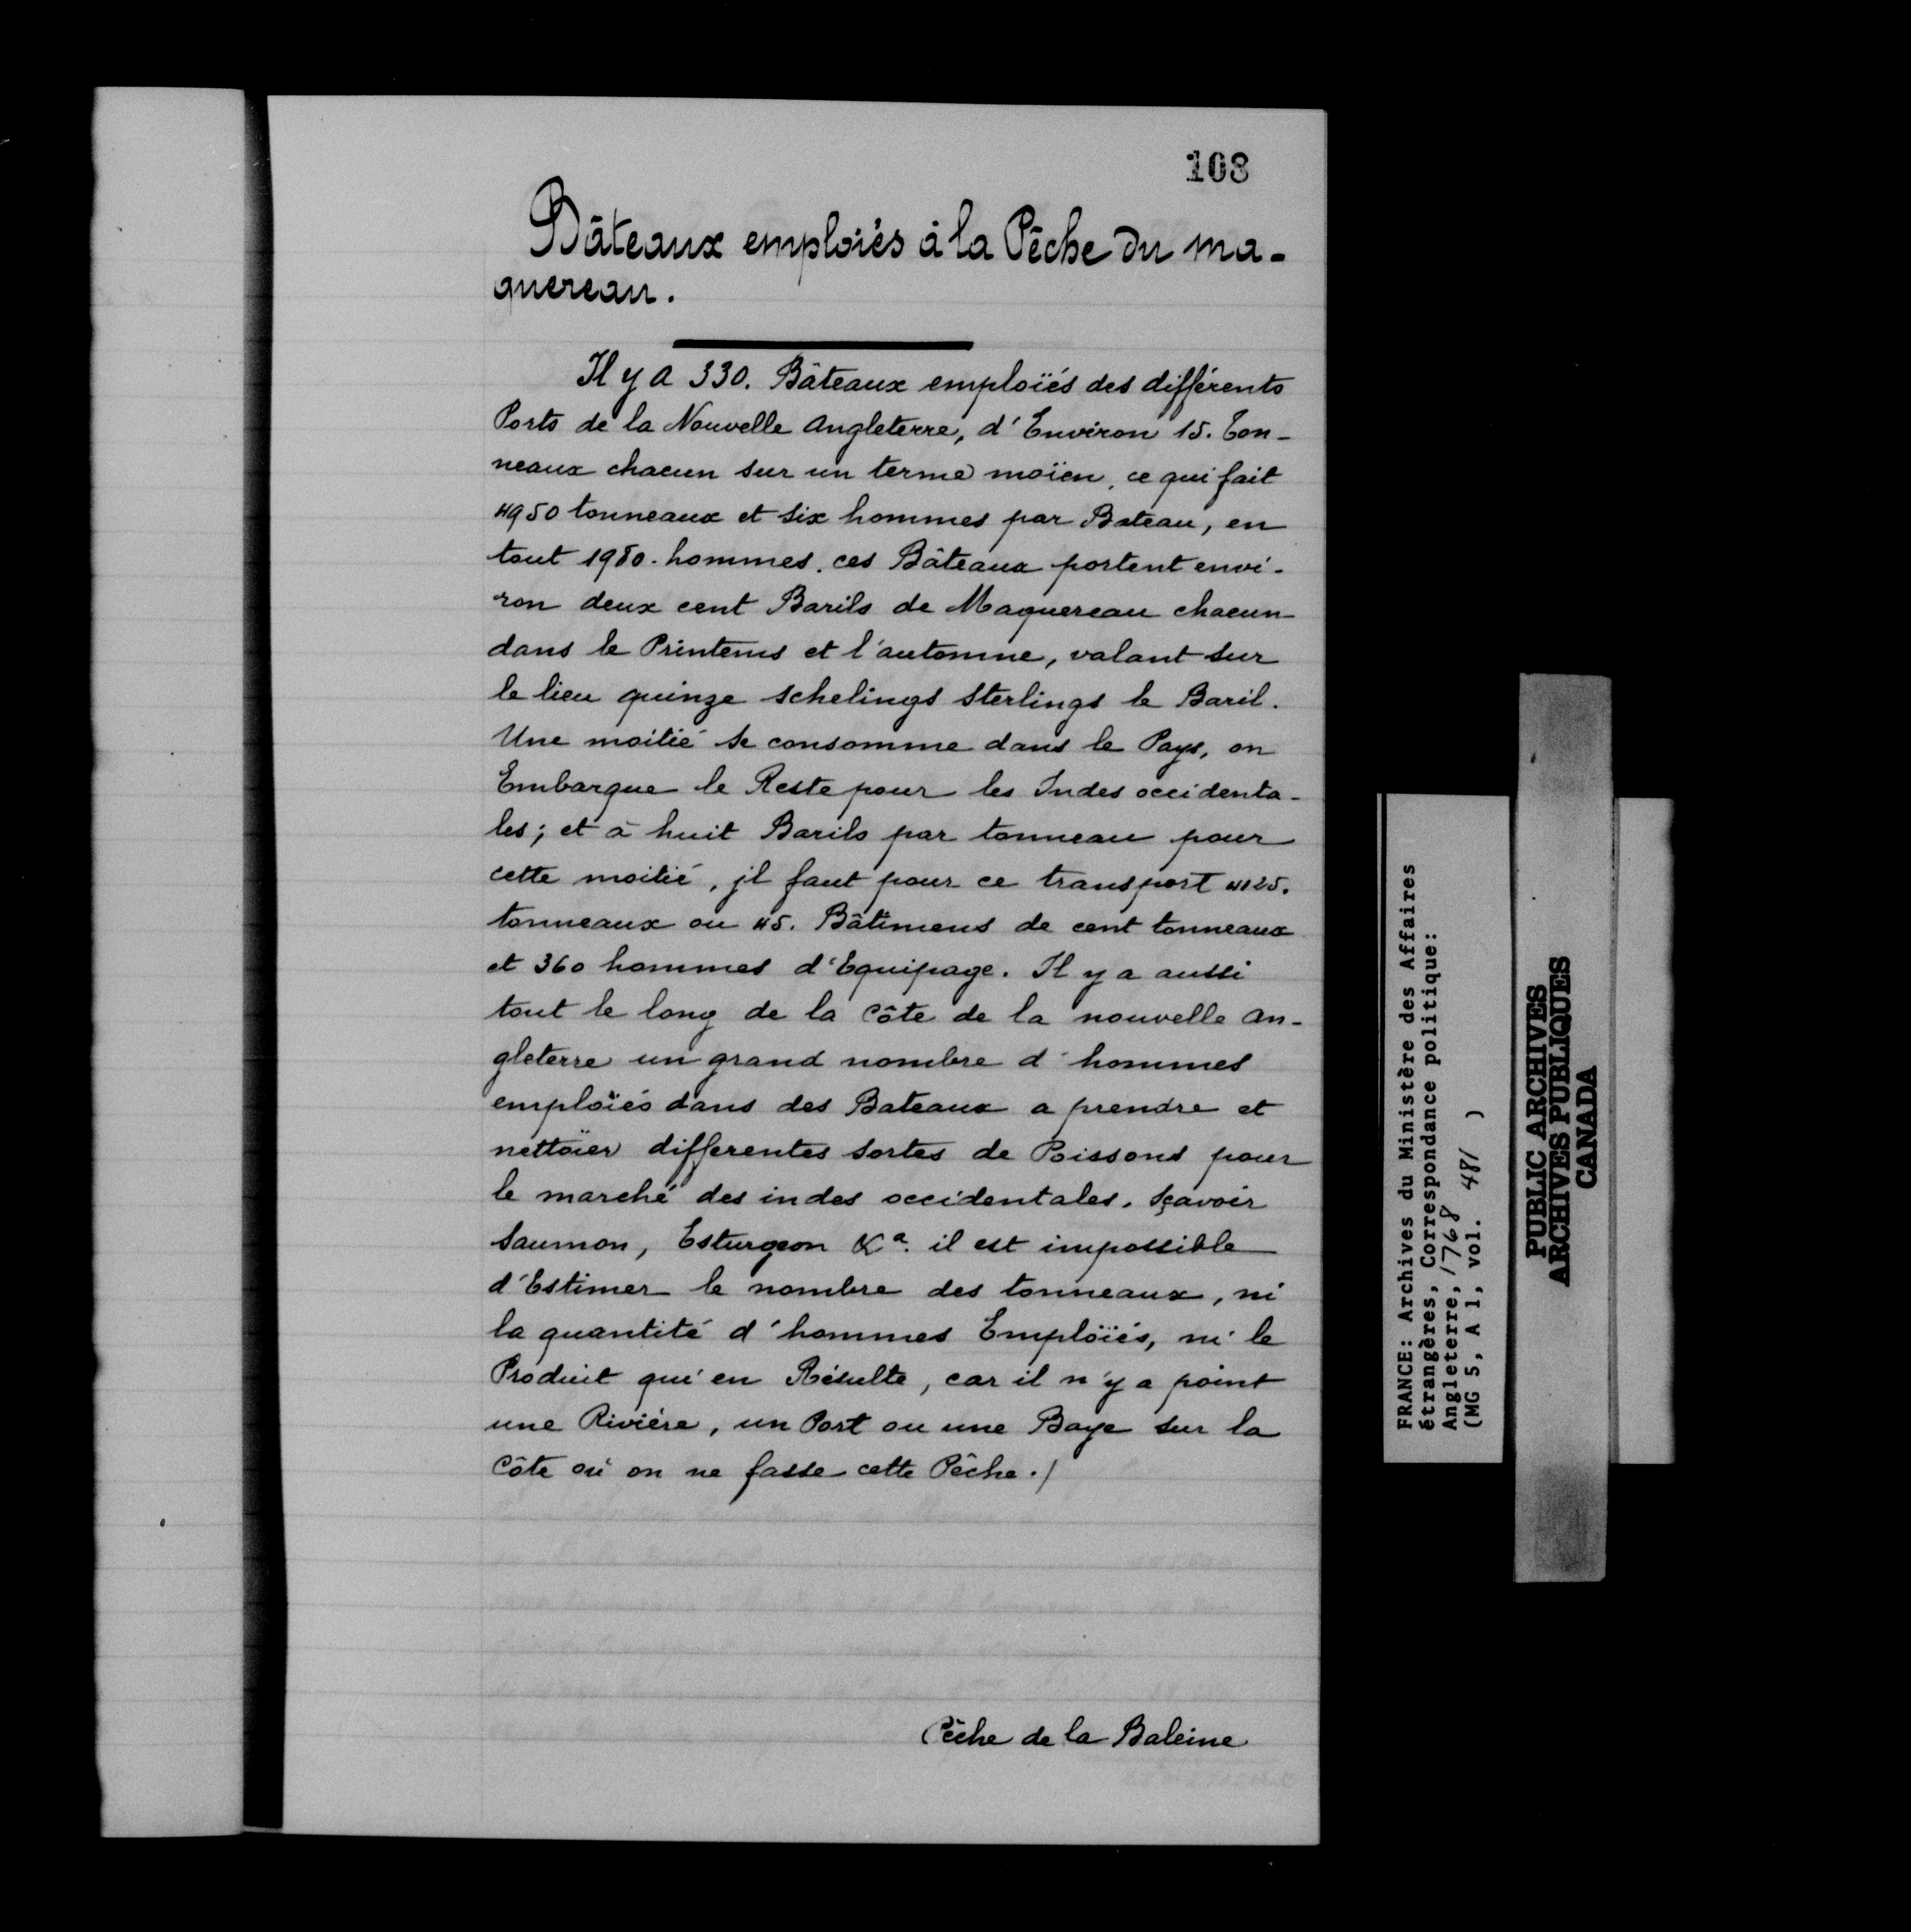 108
Bâteaux emploiés à la Pêche du ma-
quereau.
Il y a 330. Bâteaux emploïés des différents
Ports de la Nouvelle Angleterre, d'Environ 15. Ton-
neaux chacun sur un terme moïen, ce qui fait
4950 tonneaux et six hommes par Bateau, en
tout 1980. hommes. ces Bâteaux portent envi-
ron deux cent Barils de Maquereau chacun
dans le Printems et l'automne, valant sur
le lieu quinze schelings Sterlings le Baril.
Une moitié se consomme dans le Pays, on
Embarque le Reste pour les Indes occidenta-
les; et à huit Barils par tonneau pour
cette moitié, jl faut pour ce transport 4125.
tonneaux ou 45. Bâtimens de cent tonneaux
et 360 hommes d'Equipage. Il y a aussi
tout le long de la Côte de la nouvelle An-
gleterre un grand nombre d'hommes
emploïés dans des Bateaux a prendre et
nettoïer differentes sortes de Poissons pour
le marché des indes occidentales. sçavoir
Saumon, Esturgeon &a. il est impossible
d'Estimer le nombre des tonneaux, ni
la quantité d'hommes Emploïés, ni le
Produit qui en Résulte, car il n'y a point
une Riviére, un Port ou une Baye sur la
Côte où on ne fasse cette Pêche./
Pêche de la Baleine
FRANCE: Archives du Ministère des Affaires
étrangères, Correspondance politique:
Angleterre, 1768
(MG 5, A 1, vol. 481 )
PUBLIC ARCHIVES
ARCHIVES PUBLIQUES
CANADA